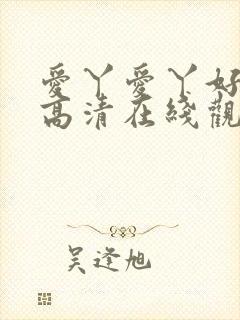 愛丫愛丫好
高清在綫觀
吴逢旭